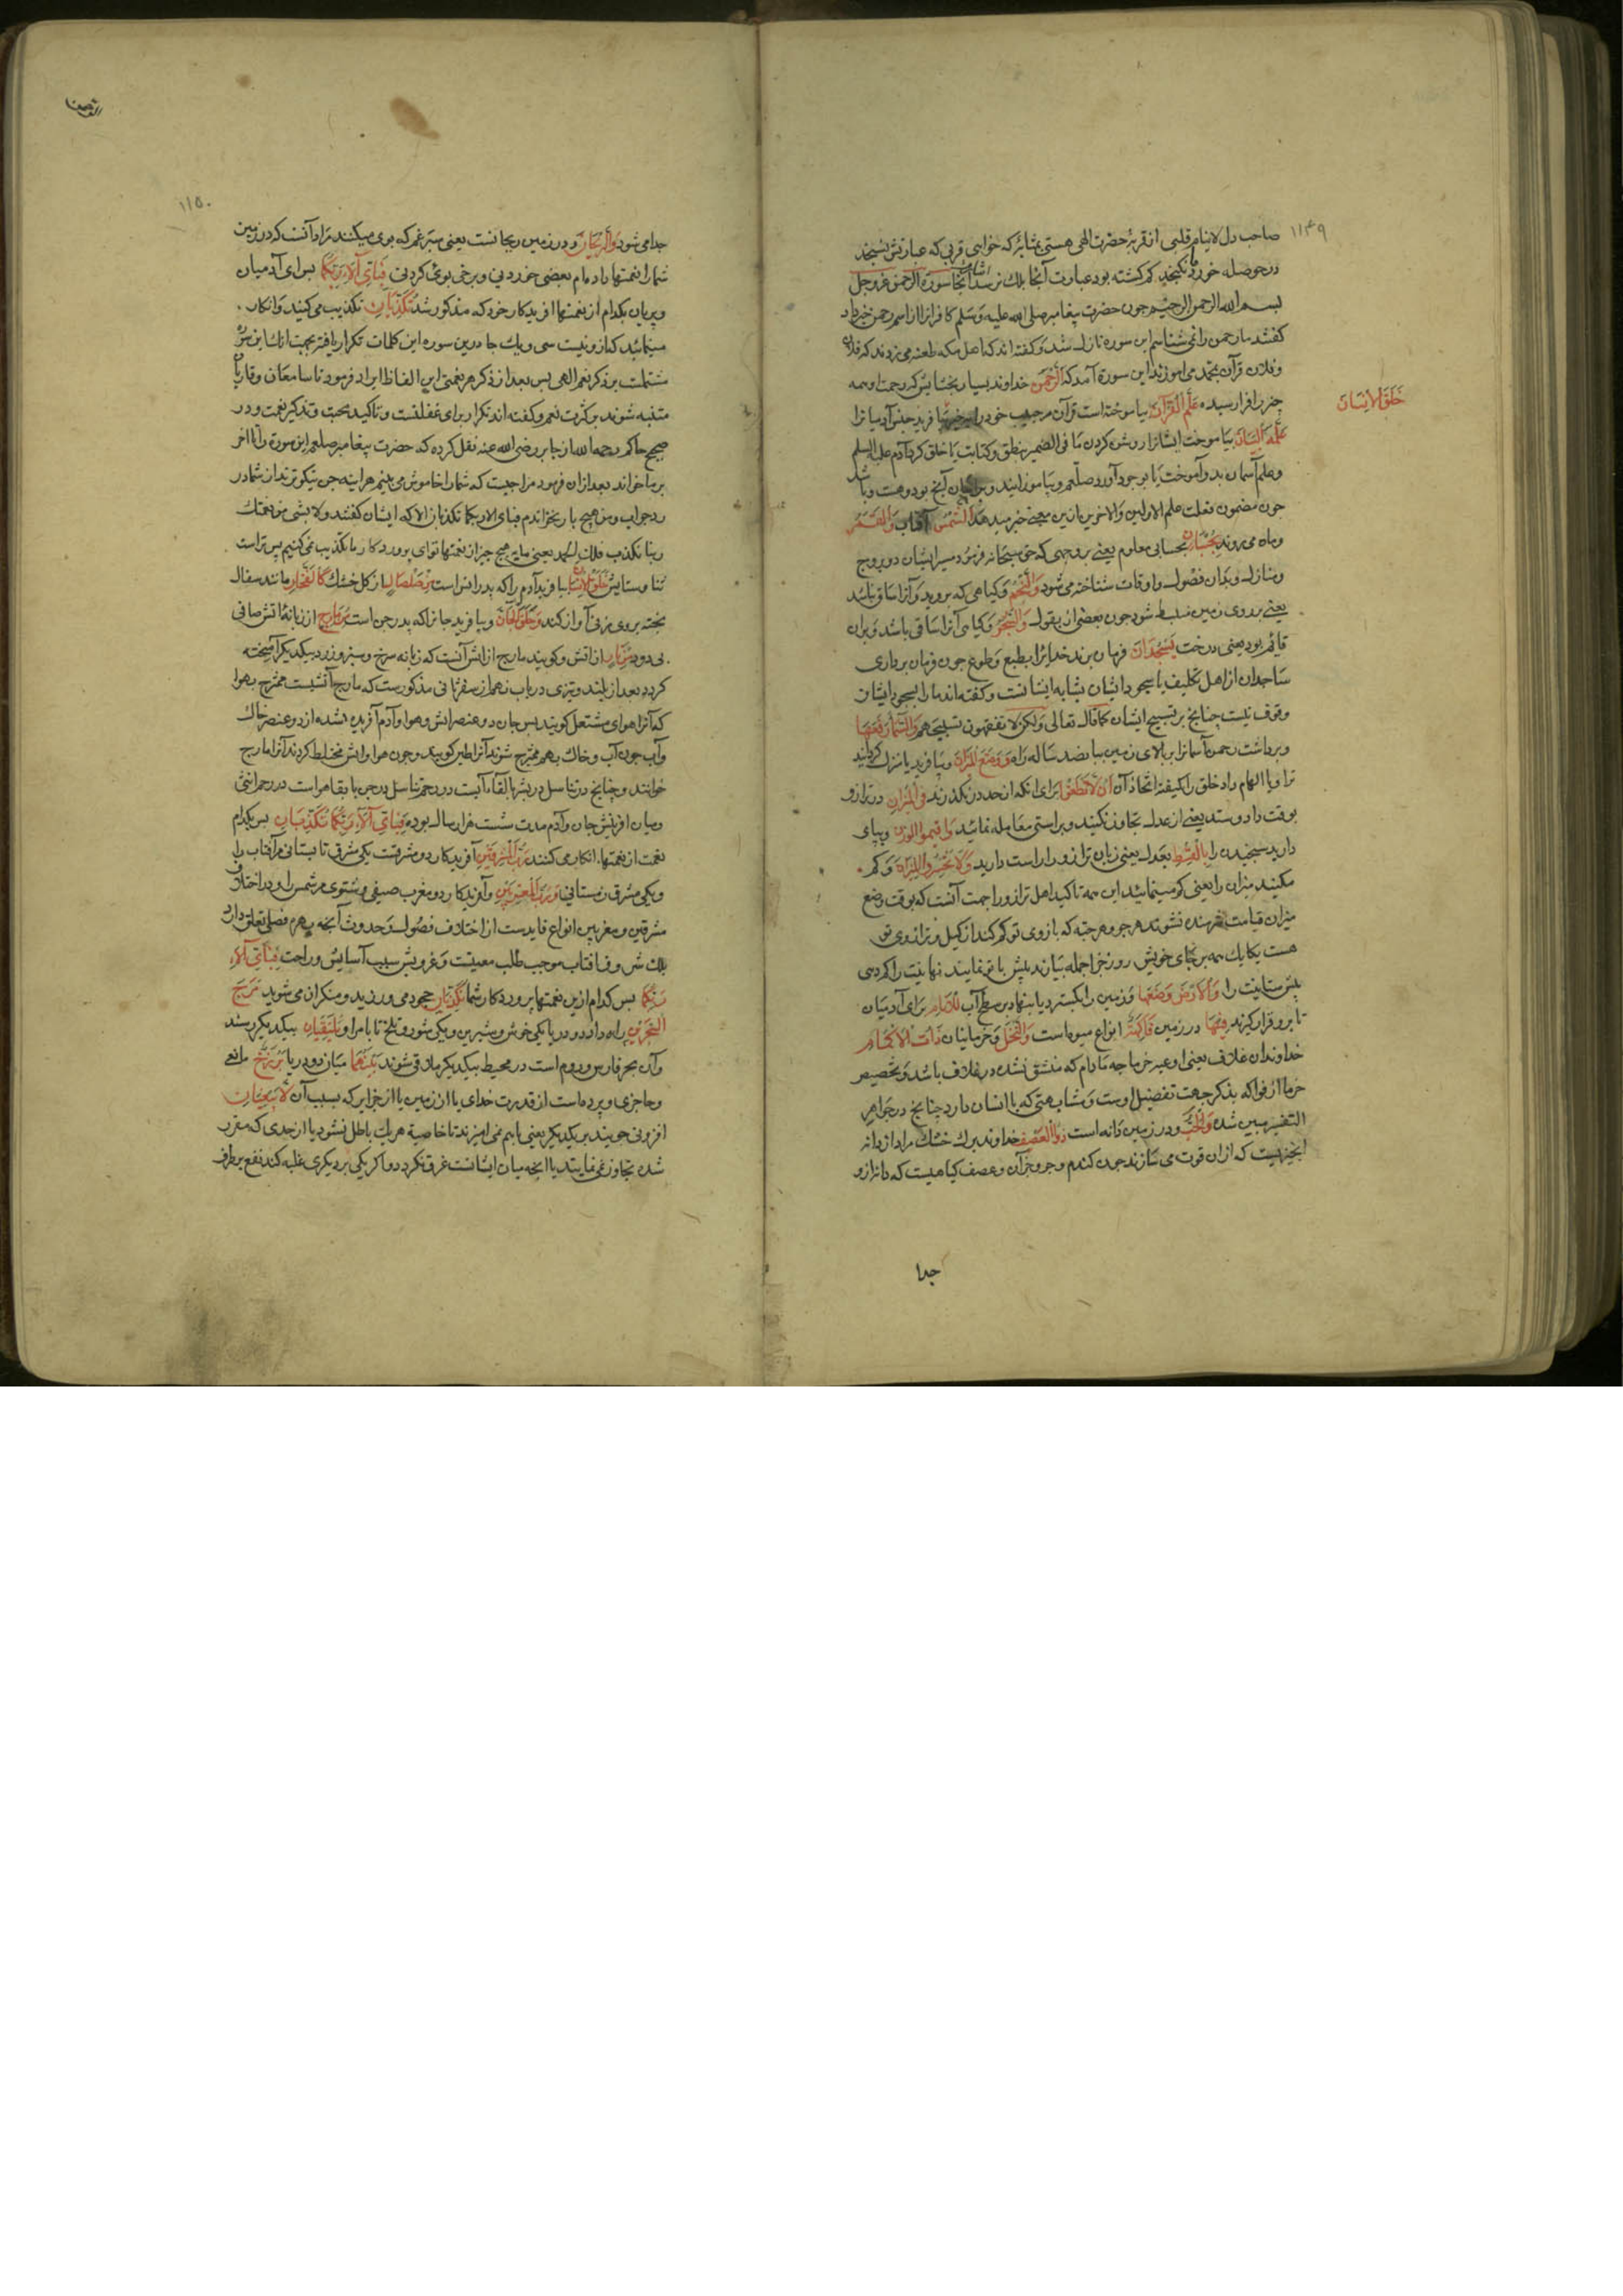 ١١٤٩
صاحب دل لاینام قلبی از قربهٔ حضرت الهی هستی بمثابهٔ که خواهی قربی که عبارتش نسنجد
در حوصله خرد نگنجد کم کشته بود عبارت آنجا بلك نرسد اشارت آنجا سورة الرحمن عز و جل
بسم الله الرحمن الرحیم چون حضرت پیغامبر صلی الله علیه وسلم کافرانرا از اسم رحمن خبر داد
کفتند ما رحمن را نمی شناسیم این سوره نازل شد و کفته اند که اهل مکه طعنه می زدند که فلان
و فلان قرآن بمحمد می آموزند این سورة آمد که الرَّحْمٰنُ خداوند بسیار بخشایش که رحمت او همه
چیز را فرا رسیده عَلَّمَ الْقُرْآنَ بیاموخته است قرآن مر حبیب خود را بیافرید جنس آدمیانرا
خَلَقَ الْاِنْسَانَ
عَلَّمَهُ الْبَيَانَ بیاموخت ایشانرا روشن کردن ما فی الضمیر بنطق و کتابت یا خلق کرد آدم علیه السلم
و علم آسمان بدو آموخت یا بوجود آورد صلعم و بیاموزانید ویرا بیان آنچ بود و هست و باشد
چون مضمون فعلمت علم الاولین والاخرین ازین معنی خبر میدهد الشَّمْسُ آفتاب وَالْقَمَرُ
و ماه می روند بِحُسْبَانٍ بحسابی معلوم یعنی بر وجهی که حق سبحانه فرمود سیر ایشان در بروج
و منازل و بدان فصول و اوقات شناخته می شود وَالنَّجْمُ و کیاهی که بروید و آنرا ساق نباشد
یعنی بر روی زمین منبسط شود چون بعضی از بقول وَالشَّجَرُ و کیاهی آنرا ساقی باشد و بران
قائم بود یعنی درخت يَسْجُدَانِ فرمان برند خدایرا بطبع و طوع چون فرمان برداری
ساجدان از اهل تکلیف یا سجود ایشان بشابه ایشانست و کفته اند ما را بسجود ایشان
وقوف نیست چنانچ بر تسبیح ایشان کما قال تعالی ولکن لا تفقهون تسبیحهم وَالسَّمَاءَ رَفَعَهَا
و برداشت رحمن آسمانرا بر بالای زمین بپانصد ساله راه وَوَضَعَ الْمِيزَانَ و بیافرید یا منزل کردانید
ترازو یا الهام داد خلق را کیفیت اتخاذ آن اَلَّا تَطْغَوْا برای آنکه از حد در نکذرند فِي الْمِيزَانِ در ترازو
بوقت داد و ستد یعنی از عدل تجاوز نکنید و براستی معامله نمائید وَاَقِيمُوا الْوَزْنَ و بپای
دارید سنجیدن را بِالْقِسْطِ بعدل یعنی زبان ترازو را راست دارید وَلَا تُخْسِرُوا الْمِيزَانَ و کم
مکنید میزان را یعنی کم مپیمائید این همه تاکید اهل ترازو را جهت آنست که بوقت وضع
میزان قیامت شرمنده نشوند هر جو و هر حبّه که بازوی تو کم کند از کیل و ترازوی تو
هست یکایك همه بر جای خویش روز جزا جمله بیارند پیش با تو نمایند نهانیت را کم دهی
بیش ستانیت را وَالْاَرْضَ وَضَعَهَا و زمین را بکسترد یا بنهاد بر سطح آب لِلْاَنَامِ برای آدمیان
تا برو قرار کیرند فِيهَا در زمین فَاكِهَةٌ انواع میوهاست وَالنَّخْلُ و خرمایان ذَاتُ الْاَكْمَامِ
خداوندان غلاف یعنی اوعیه خرما چه مادام که منشق نشده در غلاف باشد و تخصیص
خرما از فواکه بذکر جهت تفضیل اوست و مشابهتی که با انسان دارد چنانچ در جواهر
التفسیر مبین شده وَالْحَبُّ و در زمین دانه است ذُو الْعَصْفِ خداوند برك خشك مراد از دانه
آنچیزیست که ازان قوت می سازند چون کندم و جو و جز آن و عصف کیاهیست که دانه ازو
جدا
١١٥٠
جدا می شود وَالرَّيْحَانُ و در زمین ریحانست یعنی سپرغم که بوی میکنند مراد آنست که در زمین
شما را نعمتها داده ام بعضی خوردنی و برخی بوی کردنی فَبِاَيِّ آلَاءِ رَبِّكُمَا پس ای آدمیان
و پریان بکدام از نعمتها آفریدکار خود که مذکور شد تُكَذِّبَانِ تکذیب می کنید و انکار
مینمائید که ازو نیست سی و یك جا درین سوره این کلمات تکرار یافته بجهت آنك این سوره
مشتملست بر ذکر نعم الهی پس بعد از ذکر هر نعمتی این الفاظ ایراد فرمود تا سامعان و قاریان
متنبه شوند بر کثرت نعم و کفته اند تکرار برای غفلتست و تاکید محبت و تذکیر نعمت و در
صحیح حاکم رحمه الله از جابر رضی الله عنه نقل کرده که حضرت پیغامبر صلعم این سورة را تا آخر
بر ما خواند بعد ازان فرمود مرا چیست که شما را خاموش می بینم هر اینه جن نیکوتر بدند از شما در
رد جواب و من هیچ بار نخواندم فبای الاء ربکما تکذبان الا که ایشان کفتند ولا بشئ من نعمتك
ربنا نکذب فلك الحمد یعنی ما بهیچ چیز از نعمتها تو ای پروردکار ما تکذیب نمی کنیم پس تراست
ثنا و ستایش خَلَقَ الْاِنْسَانَ بیافرید آدم را که پدر انس است مِنْ صَلْصَالٍ از کل خشك كَالْفَخَّارِ مانند سفال
پخته بر وی زنی آواز کند وَخَلَقَ الْجَانَّ و بیافرید جانرا که پدر جن است مِنْ مَارِجٍ از زبانهٔ آتش صافی
بی دود مِنْ نَارٍ از آتش و کویند مارج از آتش آنست که زبانه سرخ و سبز و زرد بیکدیکر آمیخته
کردد بعد از بلند و تیزی در باب نهم از سفر ثانی مذکورست که مارج آتشیست ممتزج بهوا
که آنرا هوای مشتعل کویند پس جان دو عنصر آتش و هوا و آدم آفریده شده از دو عنصر خاك
وآب چون آب و خاك بهم ممتزج شوند آنرا طین کویند و چون هوا و آتش مختلط کردند آنرا مارج
خوانند و چنانچ در تناسل در بشر بالقاء آبست در رحم تناسل در جن بالقاء هواست در رحم انثی
و میان آفرینش جان و آدم مدت شست هزار سال بوده فَبِاَيِّ آلَاءِ رَبِّكُمَا تُكَذِّبَانِ پس بکدام
نعمت از نعمتها انکار می کنند رَبُّ الْمَشْرِقَيْنِ آفریدکار دو مشرقست یکی مشرق تابستانی مر آفتاب را
و یکی مشرق زمستانی وَرَبُّ الْمَغْرِبَيْنِ و آفریدکار دو مغرب صیفی و شتوی مر شمس را و در اختلاف
مشرقین و مغربین انواع فایدست از اختلاف فصول و حدوث آنچه بهر فصلی تعلق دارد
بلك شروق آفتاب موجب طلب معیشت و غروبش سبب آسایش و راحت فَبِاَيِّ آلَاءِ
رَبِّكُمَا پس کدام ازین نعمتها پروردکار شما تُكَذِّبَانِ جحود می ورزید و منکران می شوید مَرَجَ
الْبَحْرَيْنِ راه داد دو دریا یکی خوش و شیرین و یکی شور و تلخ تا بامر او يَلْتَقِيَانِ بیکدیکر رسند
وآن بحر فارس و روم است در محیط بیکدیکر ملاقی شوند بَيْنَهُمَا میان دو دریا بَرْزَخٌ مانعی
و حاجزی و پرده است از قدرت خدای یا از زمین یا از جزایر که بسبب آن لَا يَبْغِيَانِ
افزونی جویند بر یکدیکر یعنی باهم نمی آمیزند تا خاصیة هر یك باطل نشود یا از حدی که مقرر
شده تجاوز نمی نمایند یا آنچه میان ایشانست غرق نکردد و اکر یکی بر دیکری غلبه کند نفع بر طرف